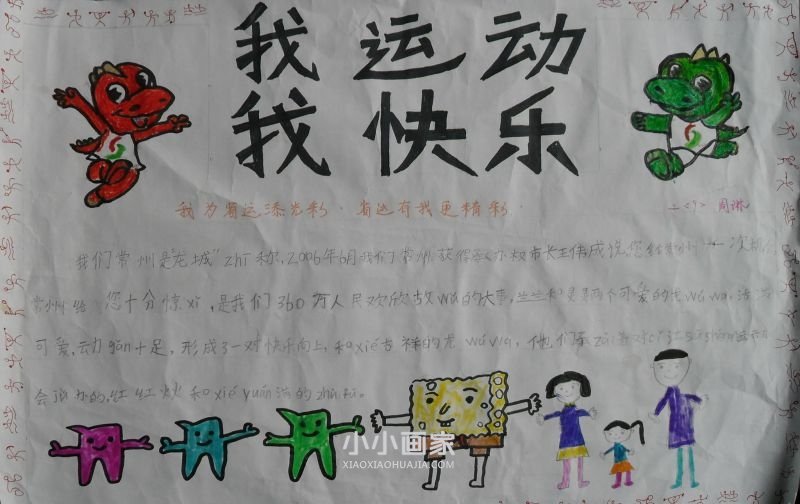 我运动
我快乐
我为省运添光彩·省运有我更精彩·
二<9> 周琳
我们常州是"龙城"zhī称,2006年6月我们常州获得承办权市长王伟成说,您给常州一次机会
常州给您十分惊xǐ,是我们360万人民欢欣故wǔ的大事,
可爱的龙wáwa,活泼
可爱,动gǎn十足,形成了一对快乐向上,和xié吉祥的龙wáwa,他们
运动
会
办的,红红火和xié
满的
小小画家
XIAOXIAOHUAJIA.COM